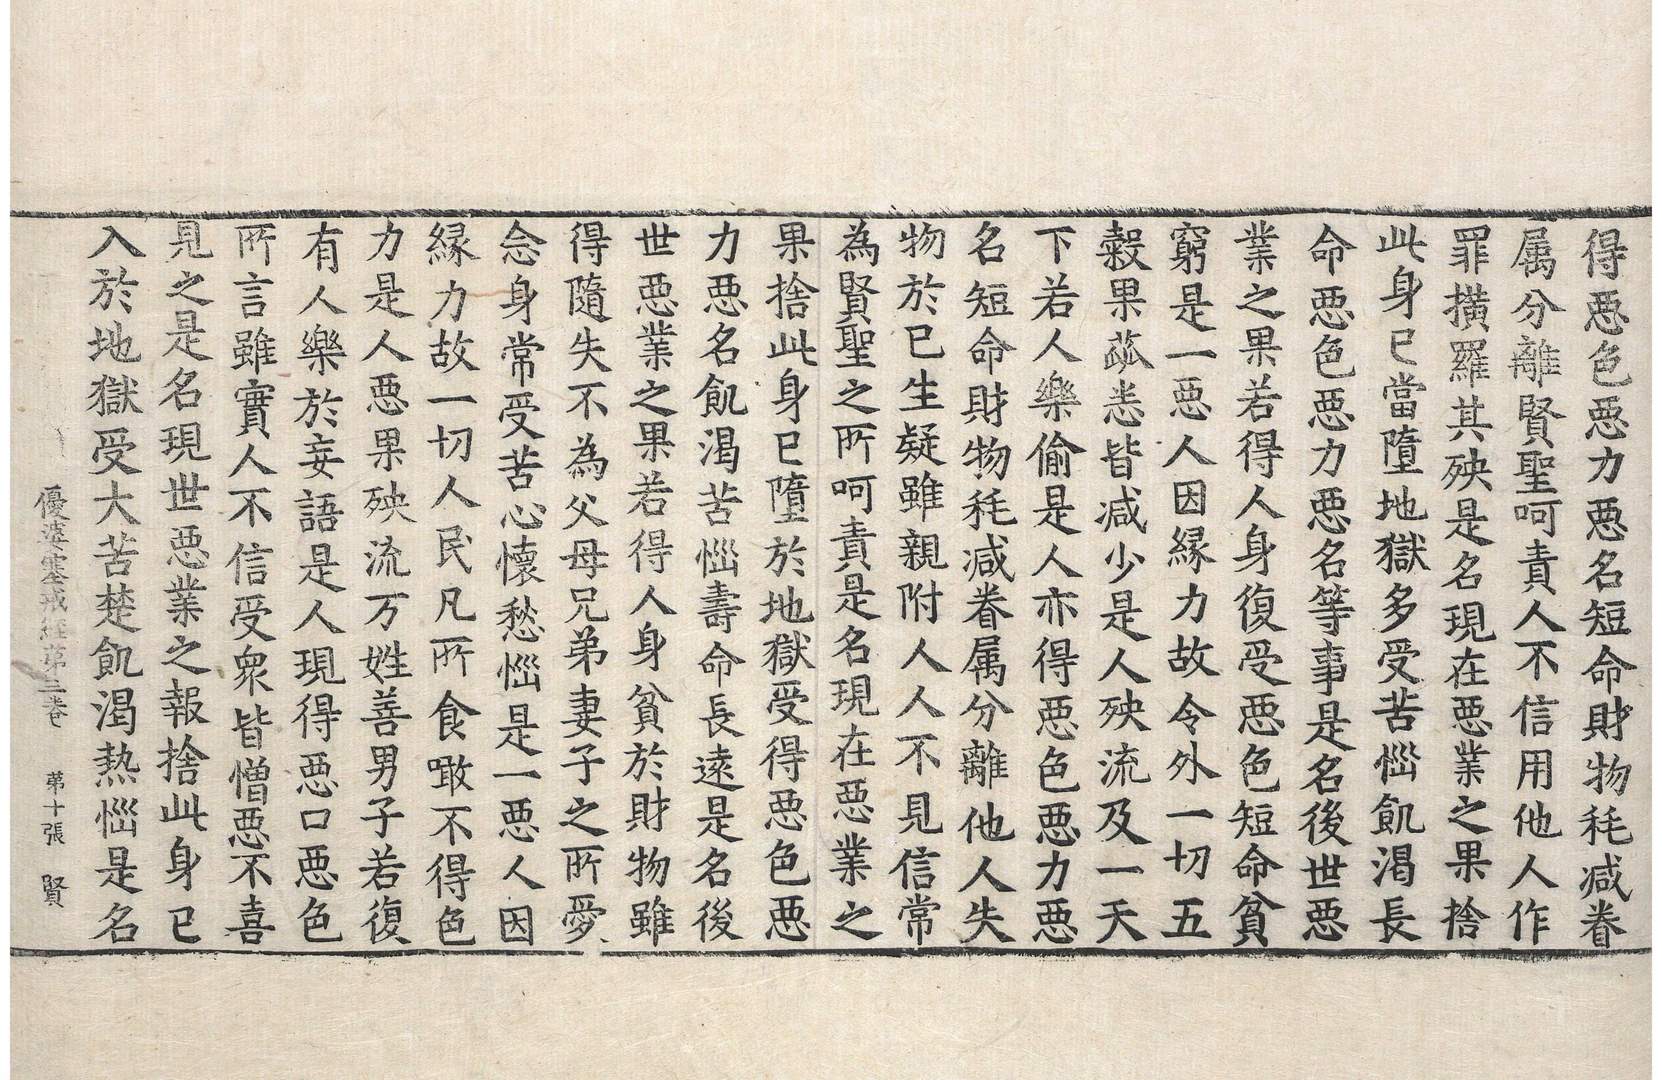 得惡色惡力惡名短命財物耗減眷
属分離賢聖呵責人不信用他人作
罪撗羅其殃是名現在惡業之果捨
此身已當墮地獄多受苦惱飢渇長
命惡色惡力惡名等事是名後世惡
業之果若得人身復受惡色短命貧
窮是一惡人因縁力故令外一切五
穀果蓏悉皆减少是人殃流及一天
下若人樂偷是人亦得惡色惡力惡
名短命財物耗減眷属分離他人失
物於已生疑雖親附人人不見信常
為賢聖之所呵責是名現在惡業之
果捨此身已墮於地獄受得惡色惡
力惡名飢渴苦惱壽命長遠是名後
世惡業之果若得人身貧於財物雖
得隨失不為父母兄弟妻子之所愛
念身常受苦心懷愁惱是一惡人因
縁力故一切人民凡所食噉不得色
力是人惡果殃流万姓善男子若復
有人樂於妄語是人現得惡口惡色
所言雖實人不信受衆皆憎惡不喜
見之是名現世惡業之報捨此身已
入於地獄受大苦楚飢渴熱惱是名
優婆塞戒経第三卷 第十張 賢